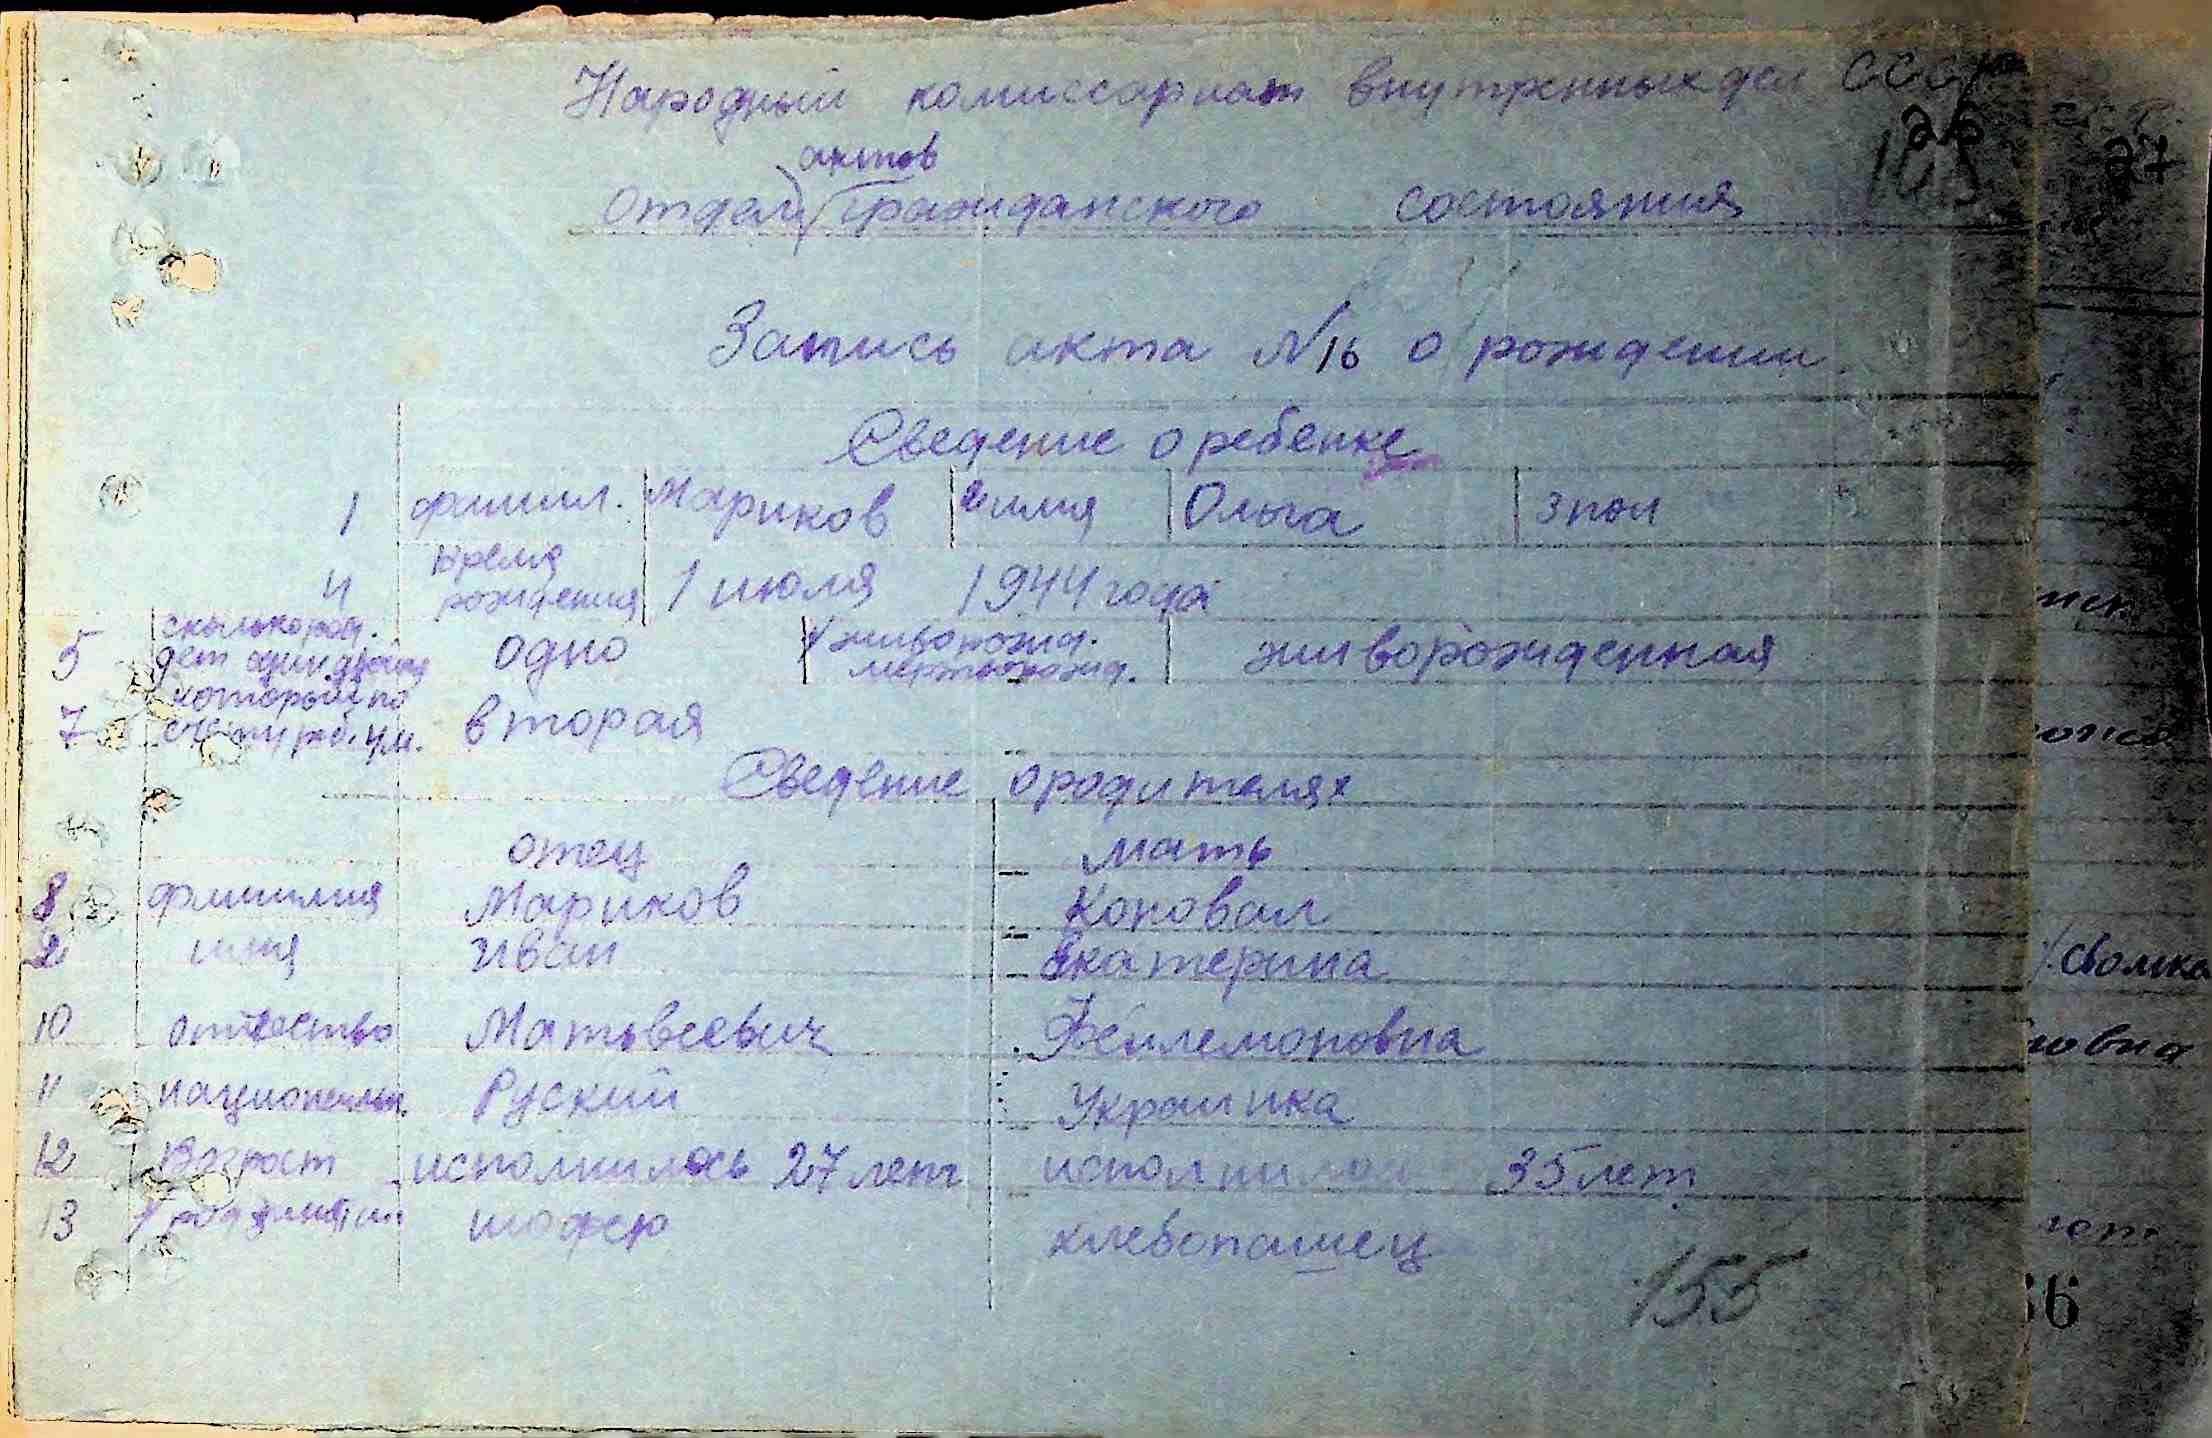 Народный комиссариат внутренных дел СССР
26
27
актов
отдел Гражданского состояния
Запись акта N16 о рождении
Сведение о ребенке
1 фамил. Мариков 2 имя Ольга 3 пол
4 время рождения 1 июля 1944 года
5 сколько род. дет один двойня одно живорожд. мертворожд. живорожденная
7 который по счету реб. у м. вторая
Сведение о родителях
отец мать
8 фамилия Мариков Коновал
9 имя Иван Екатерина
10 отчество Матьвеевич Фейлемоновна
11 националь. Руский Украинка
12 Возраст исполнилось 27 лет исполнилось 35 лет
13 шофер хлебопашец
155